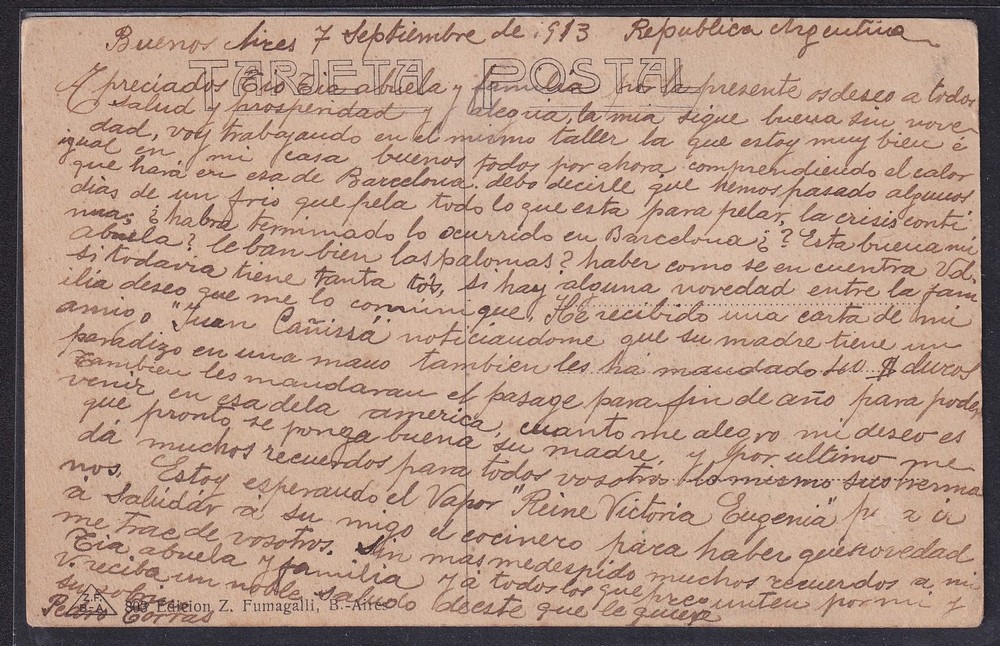 Buenos Aires 7 Septiembre de 1913 Republica Argentina
TARJETA POSTAL
Apreciados Tio Tia abuela y familia por la presente os deseo a todos
salud y prosperidad y alegria, la mia sigue buena sin nove-
dad, voy trabajando en el mismo taller la que estoy muy bien é
igual en mi casa buenos todos por ahora, comprendiendo el calor
que hará en esa de Barcelona. debo decirle que hemos pasado algunos
dias de un frio que pela todo lo que esta para pelar, la crisis conti
nua; ¿habra terminado lo ocurrido en Barcelona ¿? Esta buena mi
abuela? le ban bien las palomas? haber como se en cuentra Vd.
si todavia tiene tanta tós, si hay alguna novedad entre la fam
ilia deseo que me lo comunique, He recibido una carta de mi
amigo "Juan Cañissá" noticiandome que su madre tiene un
paradizo en una mano tambien les ha mandado duros
tambien les mandaran el pasage para fin de año para poder
venir en esa dela america, cuanto me alegro mi deseo es
que pronto se ponga buena su madre, y por ultimo me
dá muchos recuerdos para todos vosotros lo mismo sus herma
nos. Estoy esperando el Vapor "Reine Victoria Eugenia" pa ir
á saludár á su migo el cocinero para haber que novedad
me trae de vosotros. Sin mas medespido muchos recuerdos a mi
Tia abuela y familia y á todos los que pregunten por mi y
V. reciba un noble saludo deeste que le quiere
su sobrino
Pedro Torras
Z.F.
B-A.
803 Edicion Z. Fumagalli, B.-Aires